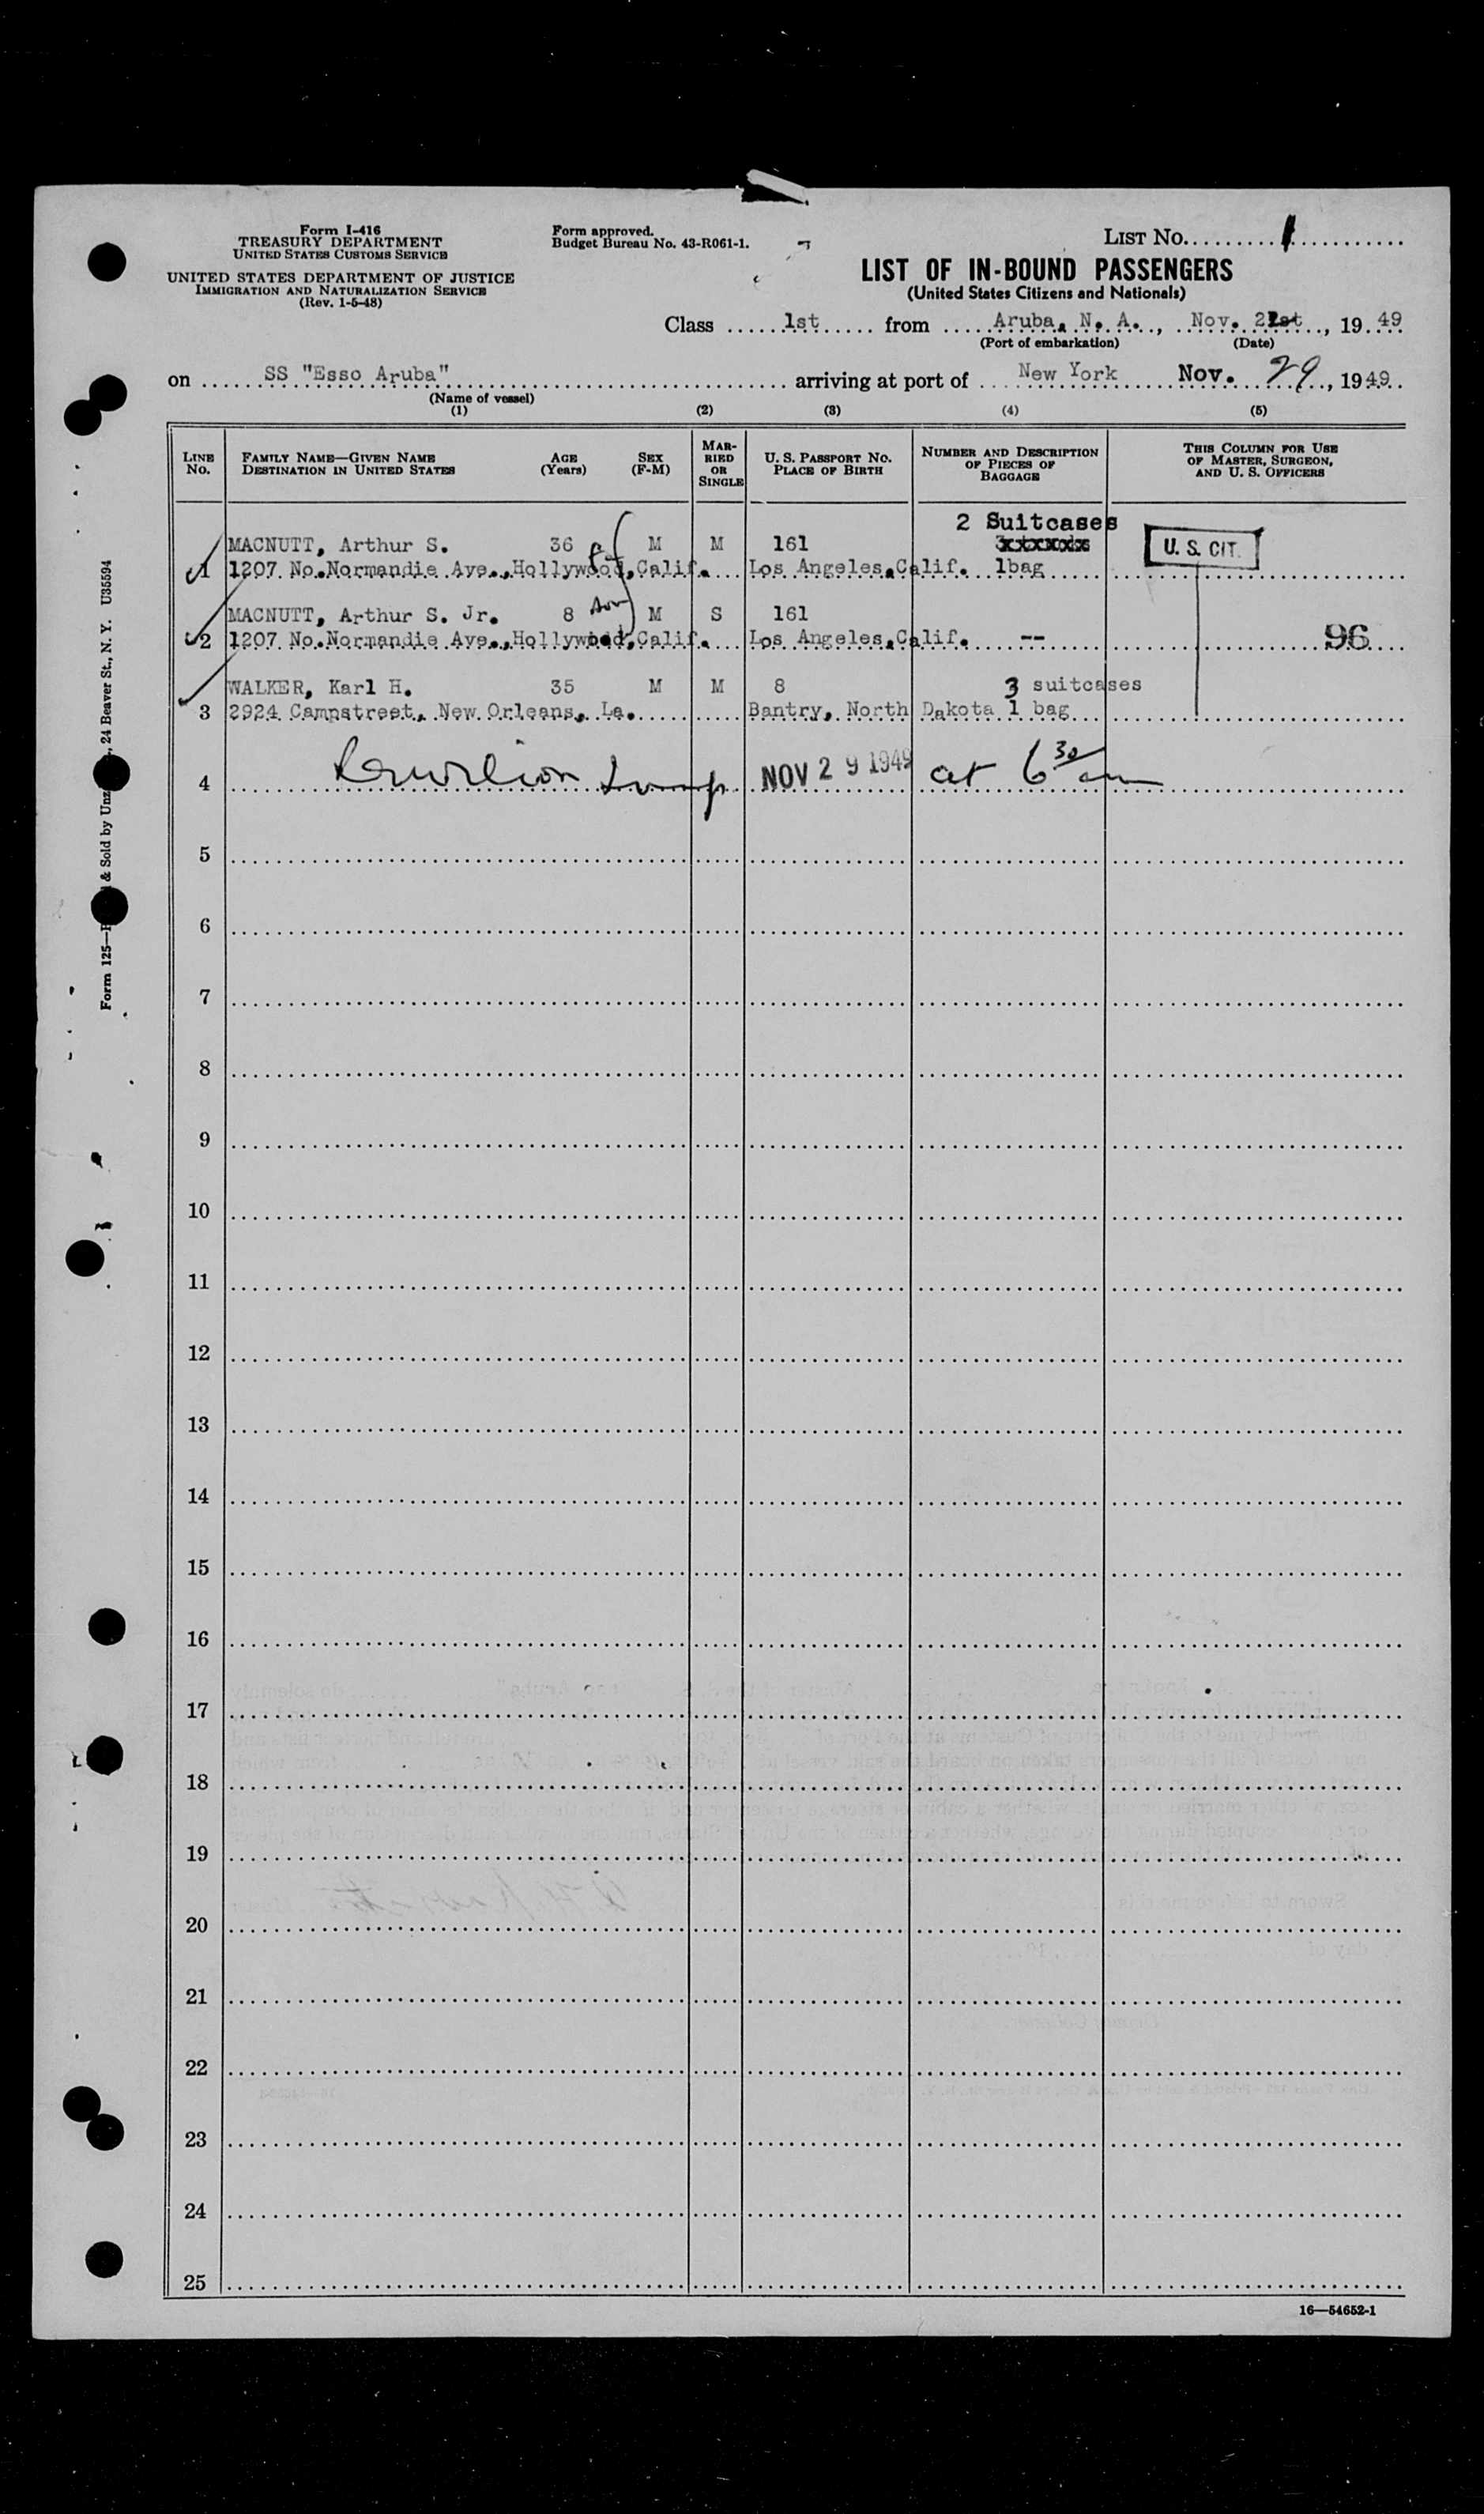 Form I-416
TREASURY DEPARTMENT
UNITED STATES CUSTOMS SERVICE
UNITED STATES DEPARTMENT OF JUSTICE
IMMIGRATION AND NATURALIZATION SERVICE
(Rev. 1-5-48)
Form approved.
Budget Bureau No. 43-R061-1.
LIST No. 1
LIST OF IN-BOUND PASSENGERS
(United States Citizens and Nationals)
Class 1st from Aruba, N. A., Nov. 21st, 19 49
(Port of embarkation) (Date)
on SS "Esso Aruba" arriving at port of New York Nov. 29, 1949
(Name of vessel)
(1) (2) (3) (4) (5)
LINE No. FAMILY NAME—GIVEN NAME DESTINATION IN UNITED STATES AGE (Years) SEX (F-M) MARRIED OR SINGLE U. S. PASSPORT NO. PLACE OF BIRTH NUMBER AND DESCRIPTION OF PIECES OF BAGGAGE THIS COLUMN FOR USE OF MASTER, SURGEON, AND U. S. OFFICERS
2 Suitcases
MACNUTT, Arthur S. 36 M M 161 U. S. CIT.
1 1207 No.Normandie Ave.,Hollywood,Calif. Los Angeles,Calif. 1bag
MACNUTT, Arthur S. Jr. 8 son M S 161
2 1207 No.Normandie Ave.,Hollywood,Calif. Los Angeles,Calif. -- 96
WALKER, Karl H. 35 M M 8 3 suitcases
3 2924 Campstreet, New Orleans, La. Bantry, North Dakota 1 bag
4 NOV 29 1949 at 6 30 am
5
6
7
8
9
10
11
12
13
14
15
16
17
18
19
20
21
22
23
24
25
16—54652-1
Form 125— & Sold by Unz , 24 Beaver St., N. Y. U35594